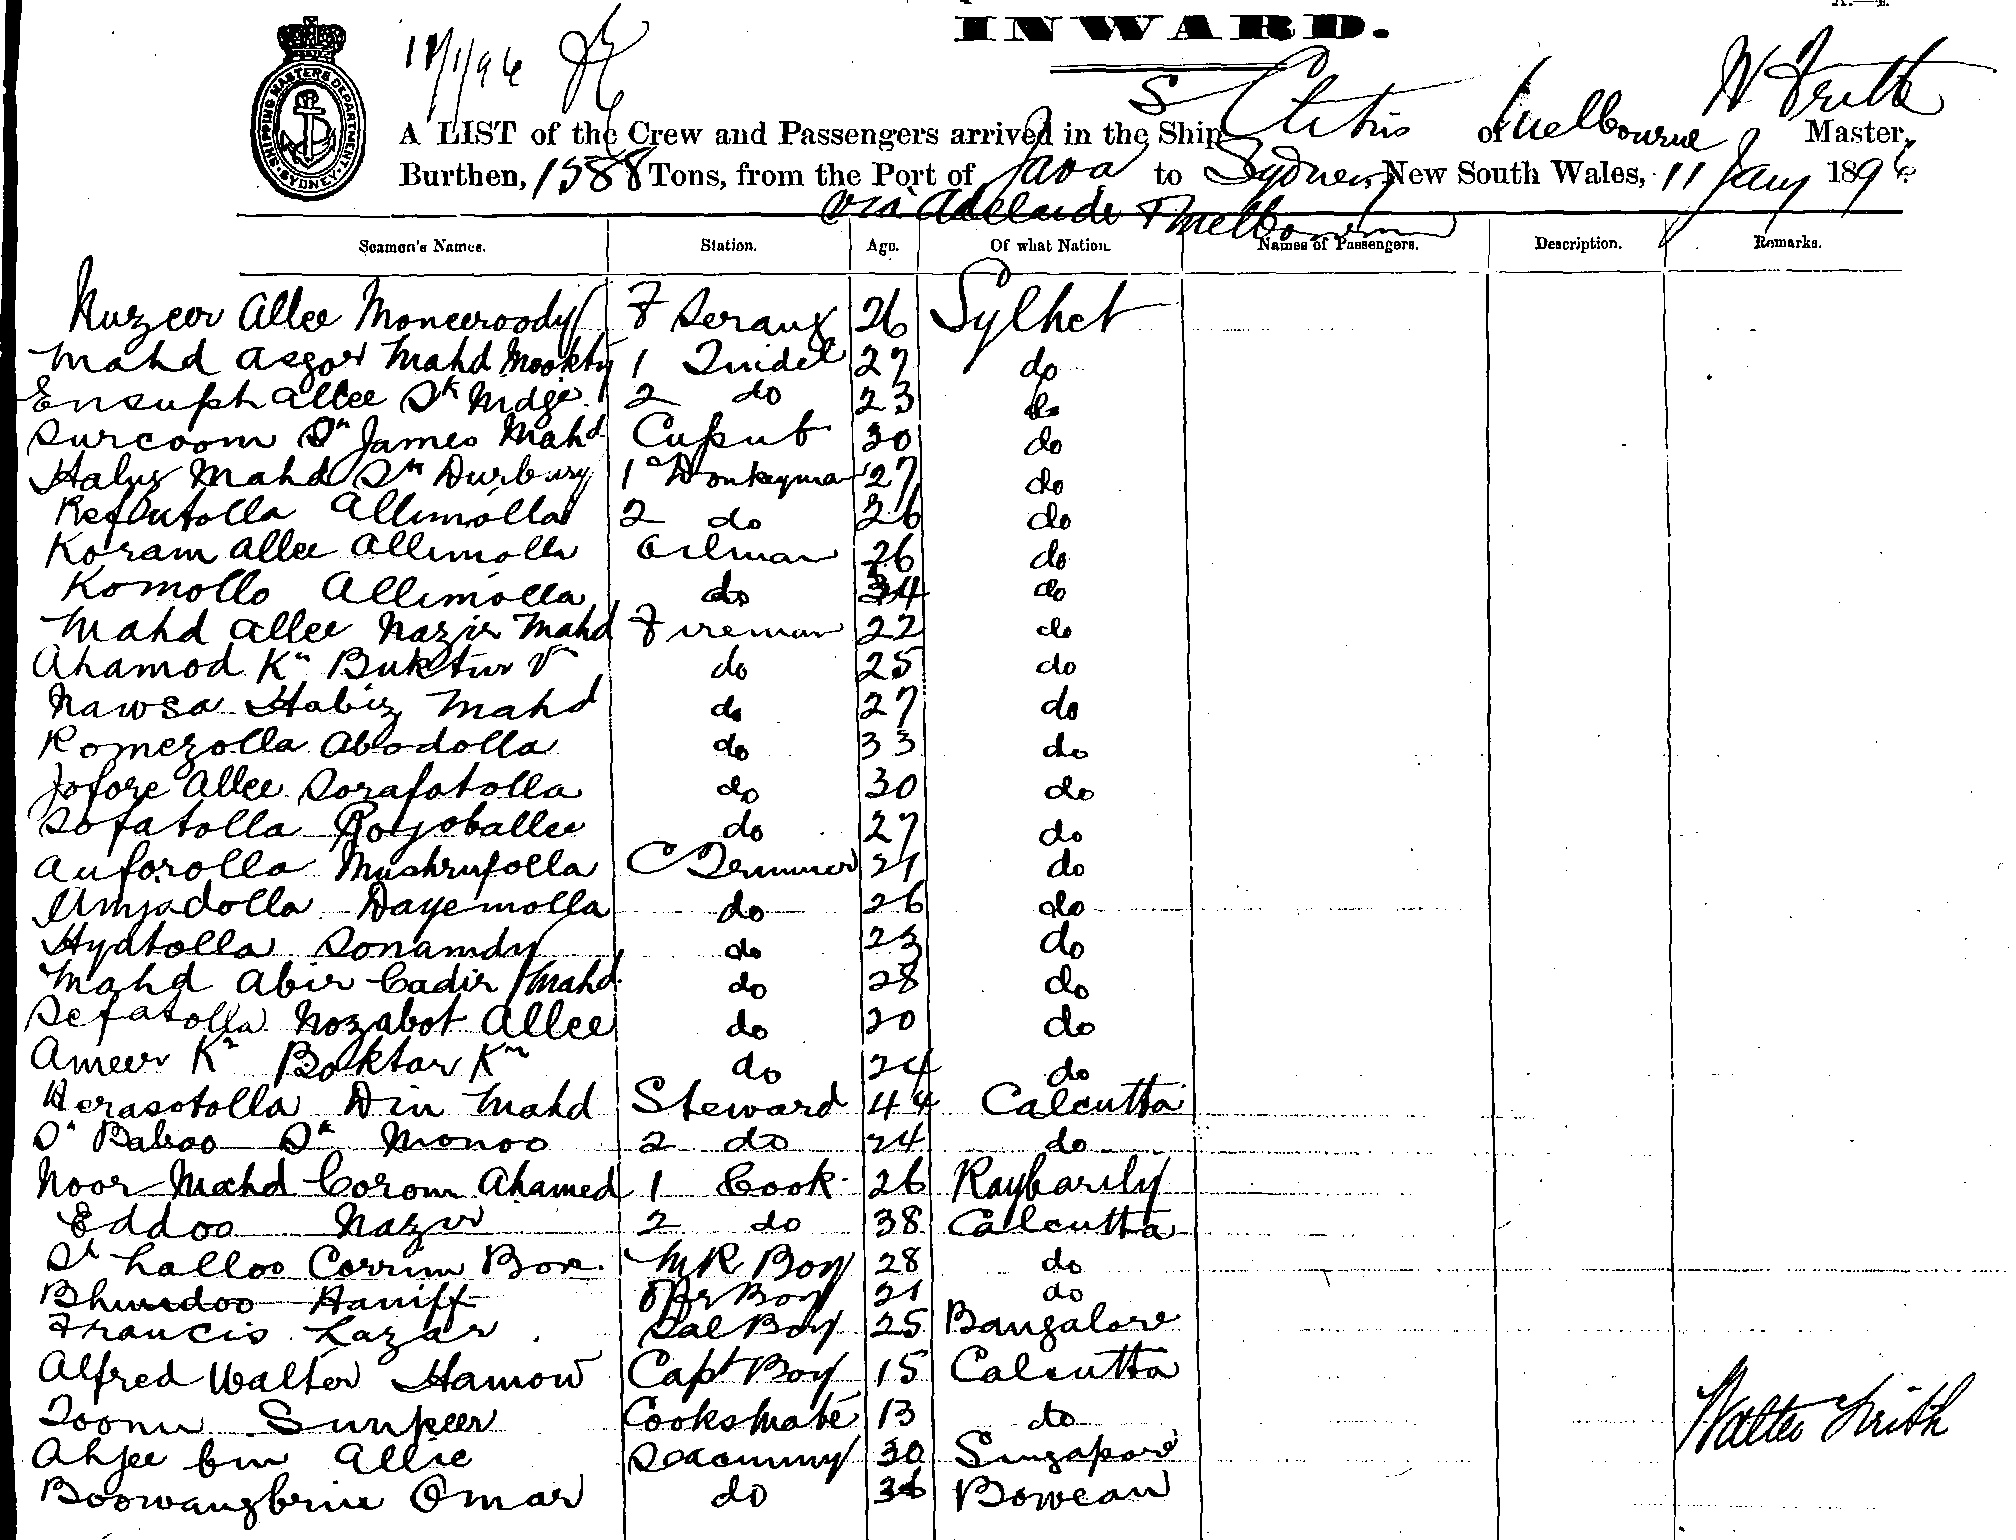 INWARD.
11/1/96
SHIPPING MASTERS DEPARTMENT SYDNEY
A LIST of the Crew and Passengers arrived in the Ship SS Clitus of Melbourne W Frith Master,
Burthen, 1588 Tons, from the Port of Java to Sydney, New South Wales, 11 Jany 1896
via Adelaide & Melbourne
Seamen's Names. Station. Age. Of what Nation. Names of Passengers. Description. Remarks.
Nuzeer Allee Moneeroody F Serang 26 Sylhet
Mahd Asgor Mahd Mookty 1 Tindel 27 do
Ensuph Allee Sk Mdge 2 do 23 do
Surcoom Sk James Mahd Cuput 30 do
Habiz Mahd Sk Durbury 1 Donkeyman 27 do
Reflutolla Allimolla 2 do 26 do
Koram Allee Allimolla Oilman 26 do
Komollo Allimolla do 34 do
Mahd Allee Nazir Mahd Fireman 22 do
Ahamod Kn Buktur do 25 do
Nawsa Habiz Mahd do 27 do
Romezolla Abodolla do 33 do
Jofore Allee Sorafotolla do 30 do
Sofatolla Rojoballee do 27 do
Auforolla Mushrufolla C Trimmer 21 do
Umjadolla Dayemolla do 26 do
Hydtolla Sonamdy do 23 do
Mahd Abir Cadir Mahd do 28 do
Sefatolla Nozabot Allee do 20 do
Ameer Kn Boktar Kn do 24 do
Herasotolla Din Mahd Steward 44 Calcutta
Sk Baboo Sk Monoo 2 do 24 do
Noor Mahd Corom Ahamed 1 Cook 26 Raybarily
Eddoo Nazir 2 do 38 Calcutta
Sk Lalloo Corrim Box MR Boy 28 do
Bhundoo Haniff Offr Boy 21 do
Francis Lazar Sal Boy 25 Bangalore
Alfred Walter Hamon Capt Boy 15 Calcutta
Toonu Sunkeer Cooks Mate 13 do
Walter Frith
Ahjee bin Allie Seacunny 30 Singapore
Boowangbrine Omar do 36 Bowean